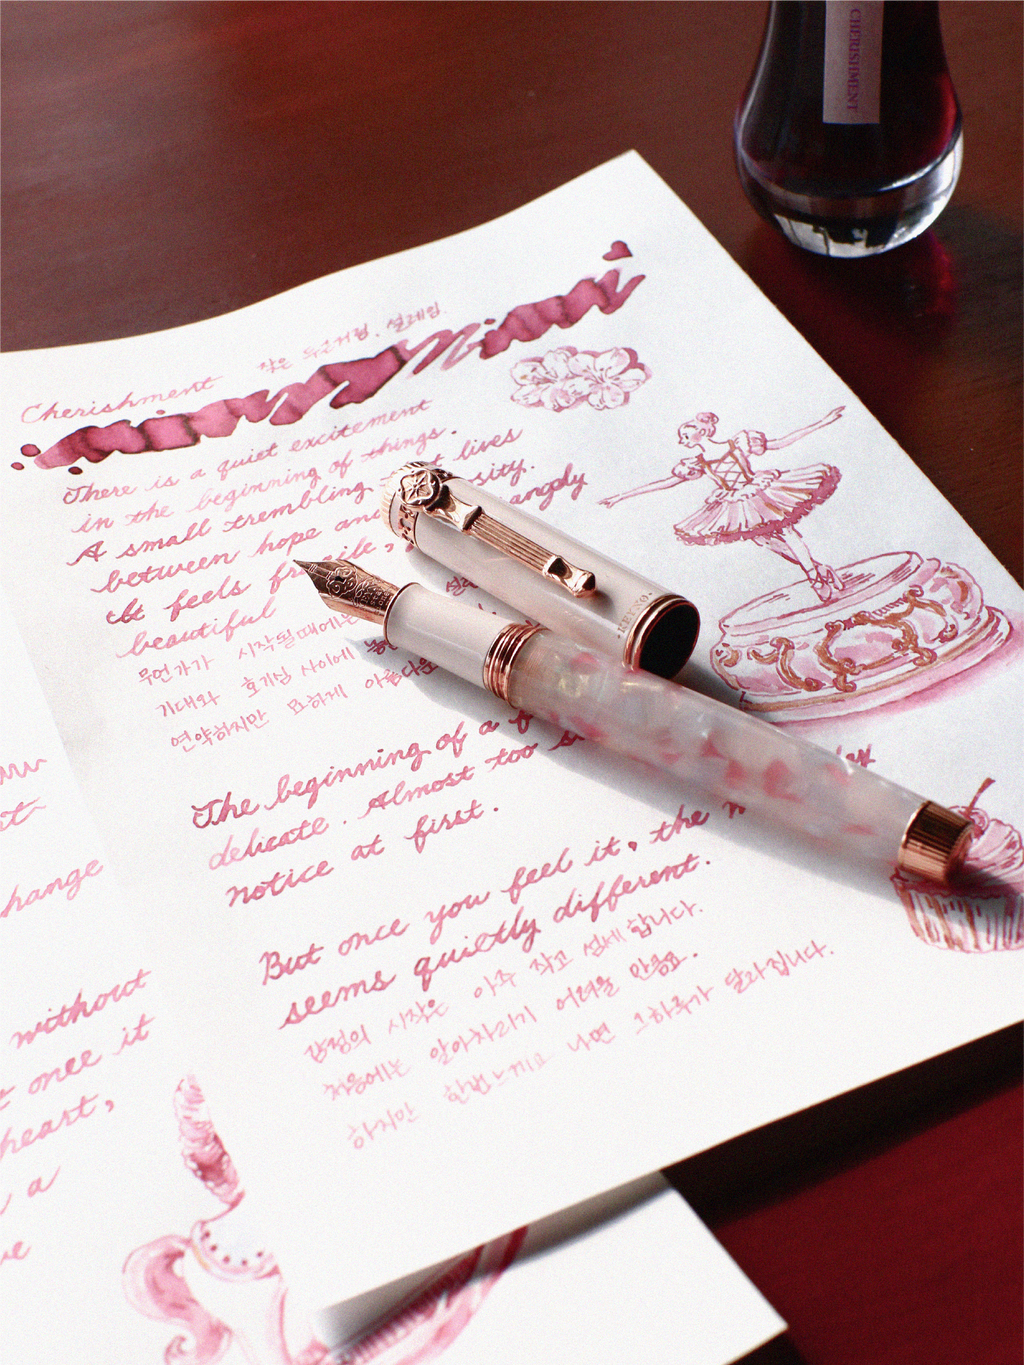 CHERISHMENT
Cherishment 작은 두근거림. 설레임.
There is a quiet excitement
in the beginning of things.
A small trembling lives
between hope and
It feels
beautiful
무언가가 시작될 때에는
기대와 호기심 사이에
연약하지만 묘하게 아름다운
KEYNO
The beginning of a
delicate. Almost too
notice at first.
But once you feel it, the
seems quietly different.
감정의 시작은 아주 작고 섬세합니다.
처음에는 알아차리기 어려울 만큼요.
하지만 한번 느끼고 나면 그 하루가 달라집니다.
without
once it
heart,
a